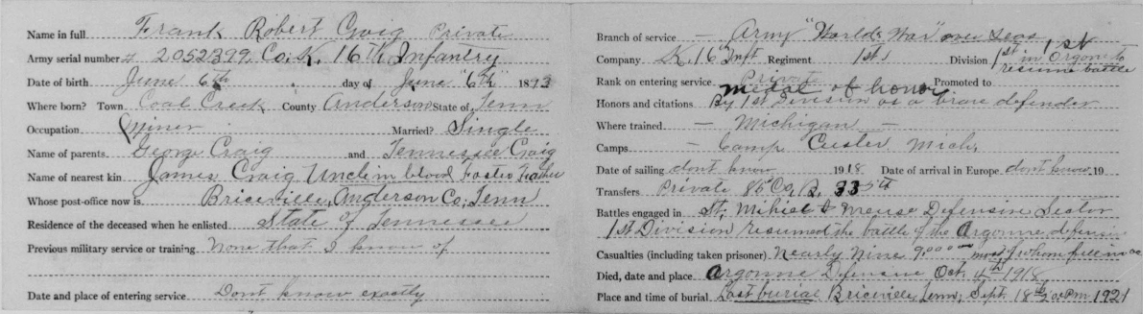 Name in full Frank Robert Craig Private
Army serial number # 2052399 Co. K, 16Th Infantry
Date of birth June 6th day of June "6th" 1893
Where born? Town Coal Creek County Anderson State of Tenn
Occupation Miner Married? Single
Name of parents George Craig and Tennessee Craig
Name of nearest kin James Craig Uncle in blood Foster Father
Whose post-office now is Briceville, Anderson Co, Tenn
Residence of the deceased when he enlisted State of Tennessee
Previous military service or training None that I know of
Date and place of entering service Dont know exactly
Branch of service — Army "World's War" over Seas
Company K, 16 Inft Regiment 1st Division 1st
1st in Argonne to
resume battle
Rank on entering service Private Promoted to
medal of honor
Honors and citations By 1st Division as a brave defender
Where trained — Michigan —
Camps — Camp Custer Mich,
Date of sailing dont know 1918 Date of arrival in Europe dont know 19
Transfers Private 85 33
Battles engaged in St, Mihiel & Meuse Defensive Sector
1st Division resumed the battle of the Argonne defensive
Casualties (including taken prisoner) Nearly Nine 9000 — most of whom fell in
Died, date and place Argonne Defensive Oct, 4th 1918
Place and time of burial Last burial Briceville, Tenn, Sept. 18th 2 oo PM 1921